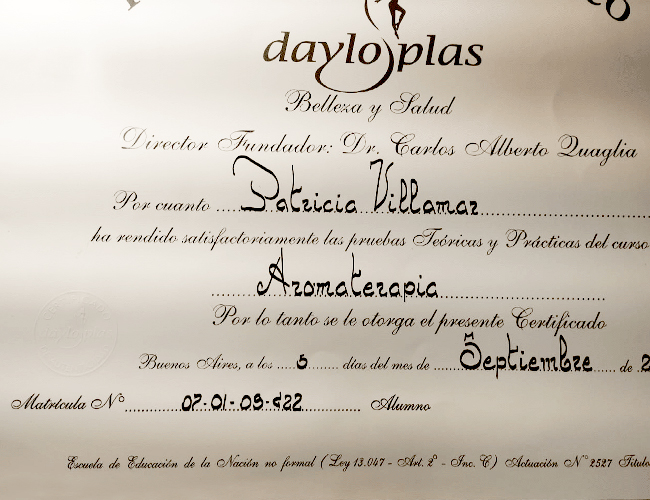 dayloplas
Belleza y Salud
Director Fundador: Dr. Carlos Alberto Quaglia
Por cuanto Patricia Villamar
ha rendido satisfactoriamente las pruebas Teóricas y Prácticas del curso
Aromaterapia
Por lo tanto se le otorga el presente Certificado
Buenos Aires, a los 5 días del mes de Septiembre de 2
Matrícula Nº 07-01-09-422 Alumno
Escuela de Educación de la Nación no formal (Ley 13.047 - Art. 2º - Inc. C) Actuación Nº 2527 Título